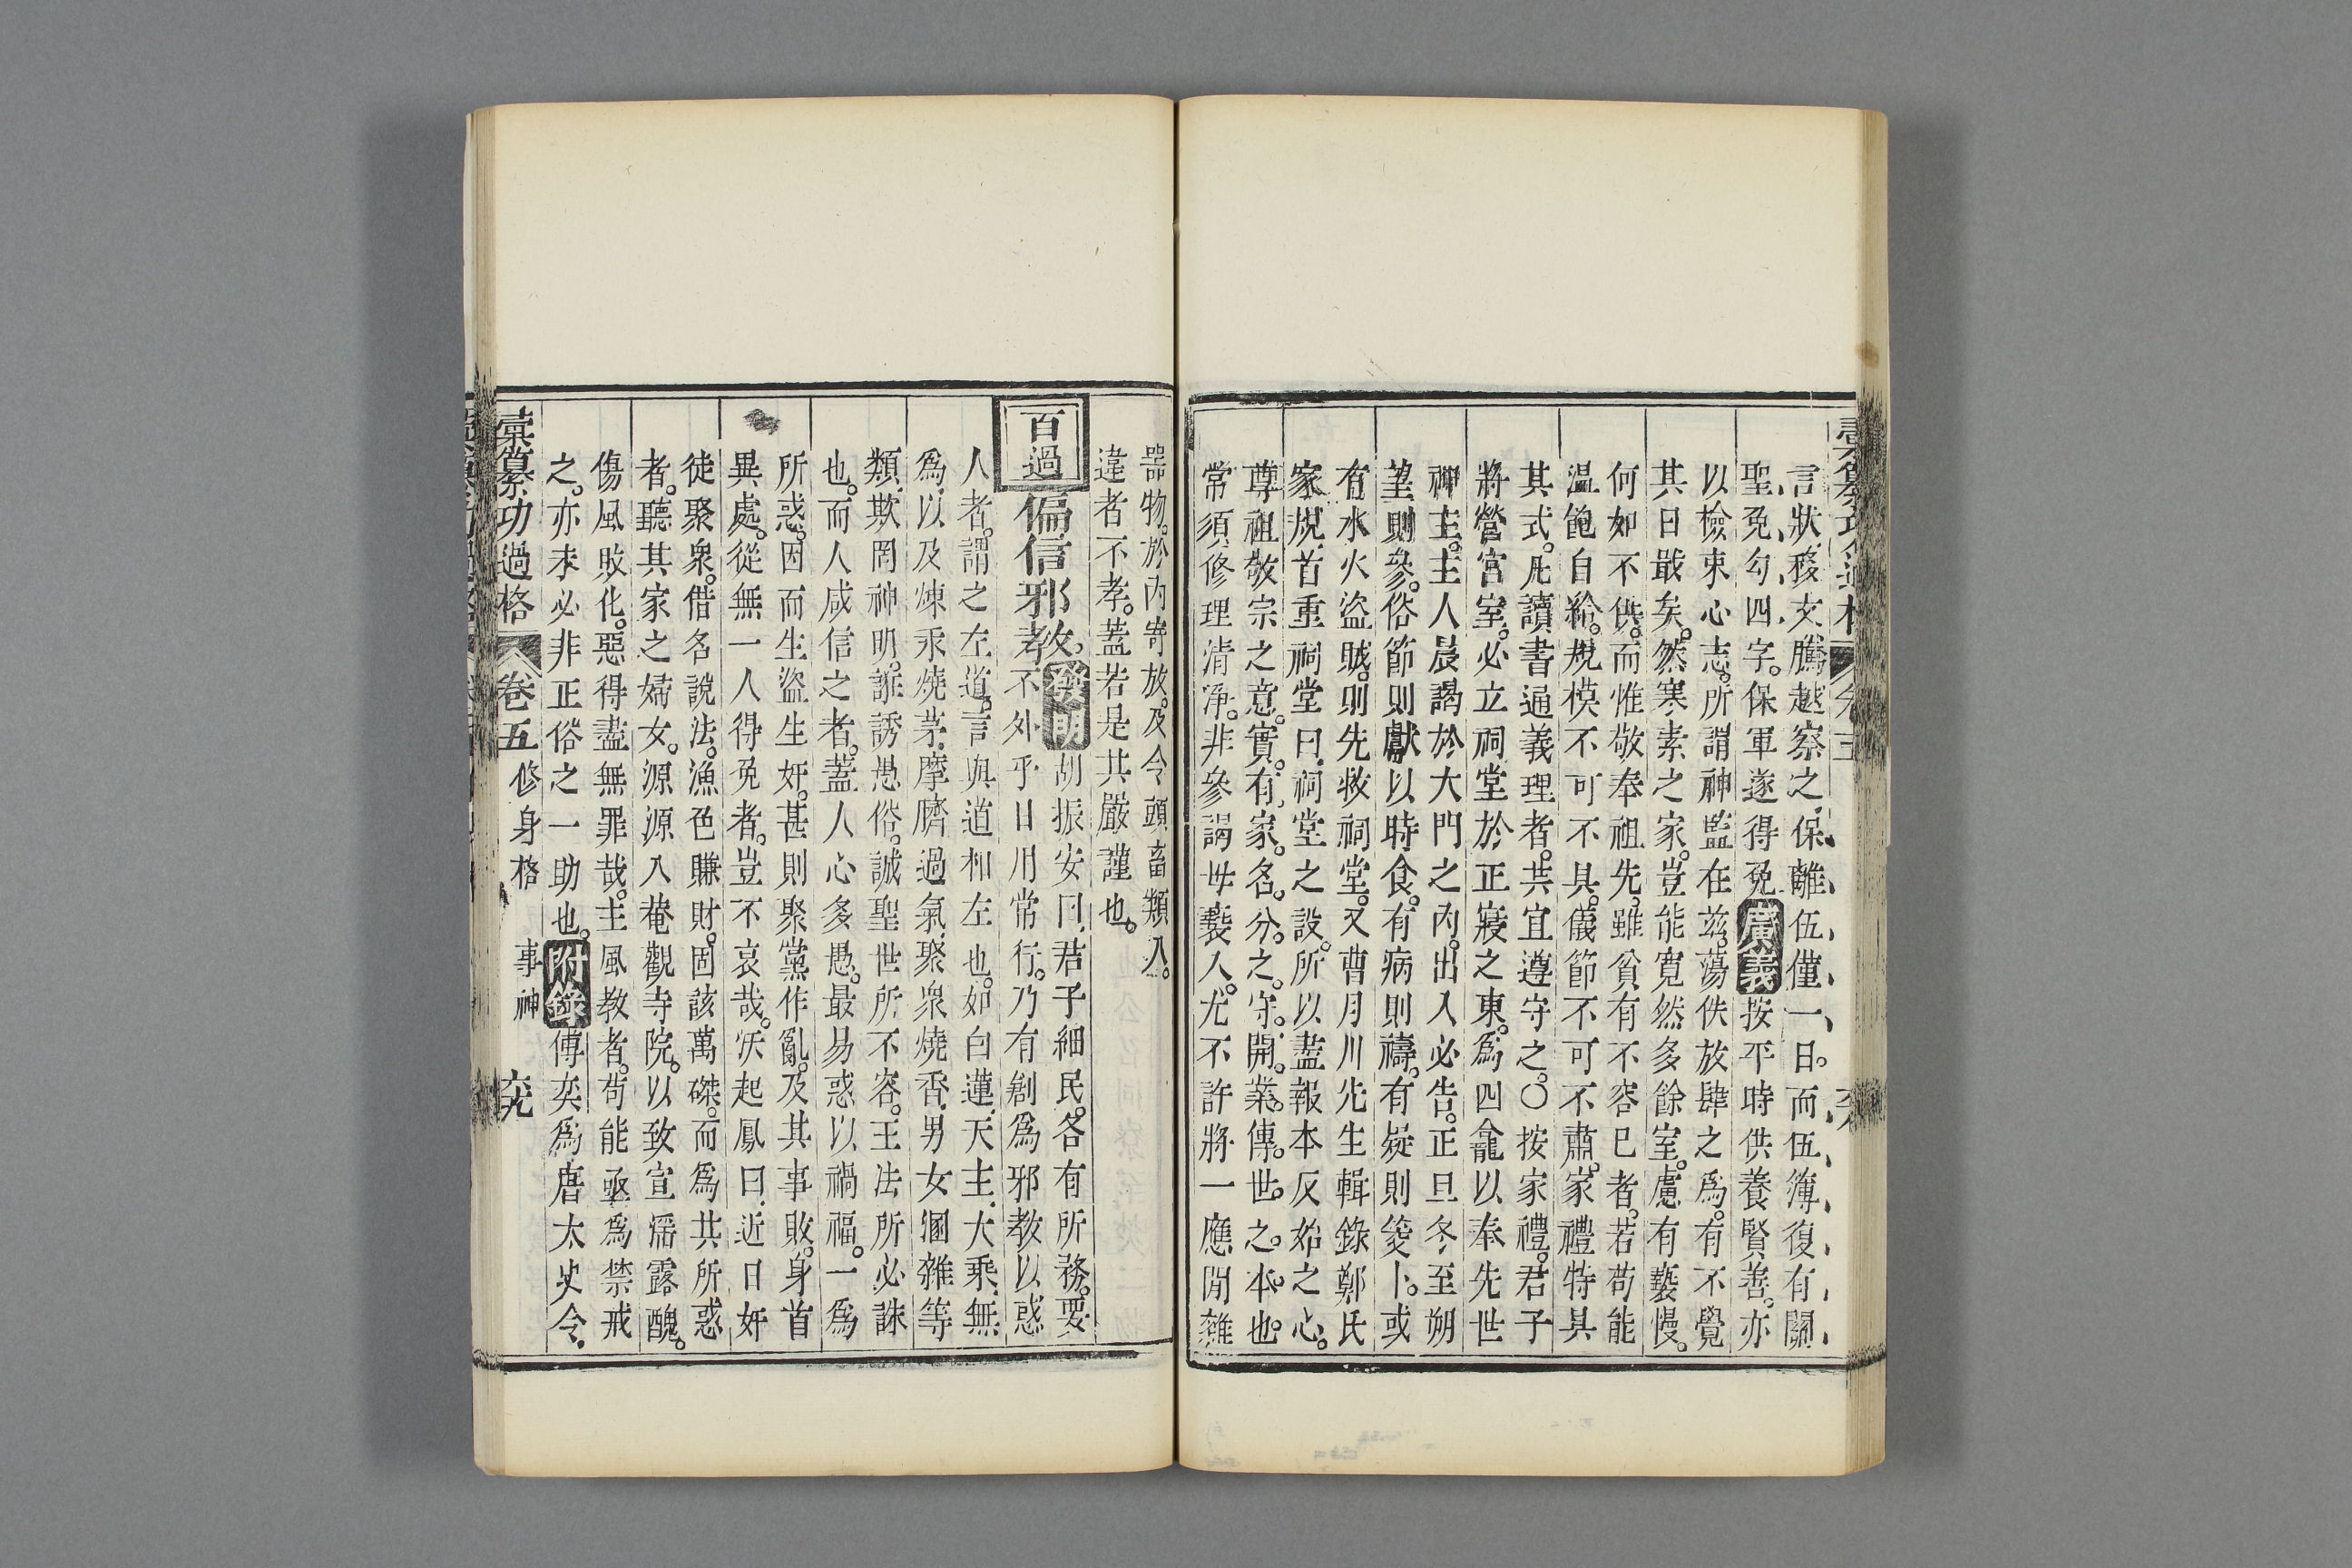 言狀移文騰越察之保離伍僅一日而伍簿復有關
聖免勾四字。保軍遂得免廣義按平時供養賢善。亦
以檢束心志。所謂神監在茲。蕩佚放肆之爲。有不覺
其日戢矣。然寒素之家。豈能寬然多餘室。慮有褻慢。
何如不供。而惟敬奉祖先。雖貧有不容已者。若苟能
溫飽自給。規模不可不具。儀節不可不肅。家禮特具
其式。凡讀書通義理者。共宜遵守之。○按家禮。君子
將營宮室。必立祠堂於正寢之東。爲四龕以奉先世
神主。主人晨謁於大門之內。出入必告。正旦冬至朔
望則參。俗節則獻以時食。有病則禱。有疑則筊卜。或
有水火盜賊。則先救祠堂。又曹月川先生輯錄鄭氏
家規。首重祠堂曰。祠堂之設。所以盡報本反始之心。
尊祖敬宗之意。實有家名分之守。開業傳世之本也。
常須修理清淨。非參謁毋褻入。尤不許將一應閒雜
器物。於內寄放。及令頭畜類入。
違者不孝。蓋若是共嚴謹也。
百過 偏信邪教。發明胡振安曰。君子細民。各有所務。要
不外乎日用常行。乃有剏爲邪教以惑
人者。謂之左道。言與道相左也。如白蓮天主大乘無
爲以及煉汞燒茅。摩臍過氣。聚眾燒香。男女溷雜等
類。欺罔神明。誑誘愚俗。誠聖世所不容。王法所必誅
也。而人咸信之者。蓋人心多愚。最易惑以禍福。一爲
所惑。因而生盜生奸。甚則聚黨作亂。及其事敗。身首
異處。從無一人得免者。豈不哀哉。疢起鳳曰。近日奸
徒聚衆。借名說法。漁色賺財。固該萬磔。而爲共所惑
者。聽其家之婦女。源源入菴觀寺院。以致宣婬露醜。
傷風敗化。惡得盡無罪哉。主風教者。苟能亟爲禁戒
之。亦未必非正俗之一助也。附錄傅奕爲唐太史令。
彙纂功過格 卷五 修身格 事神 六九